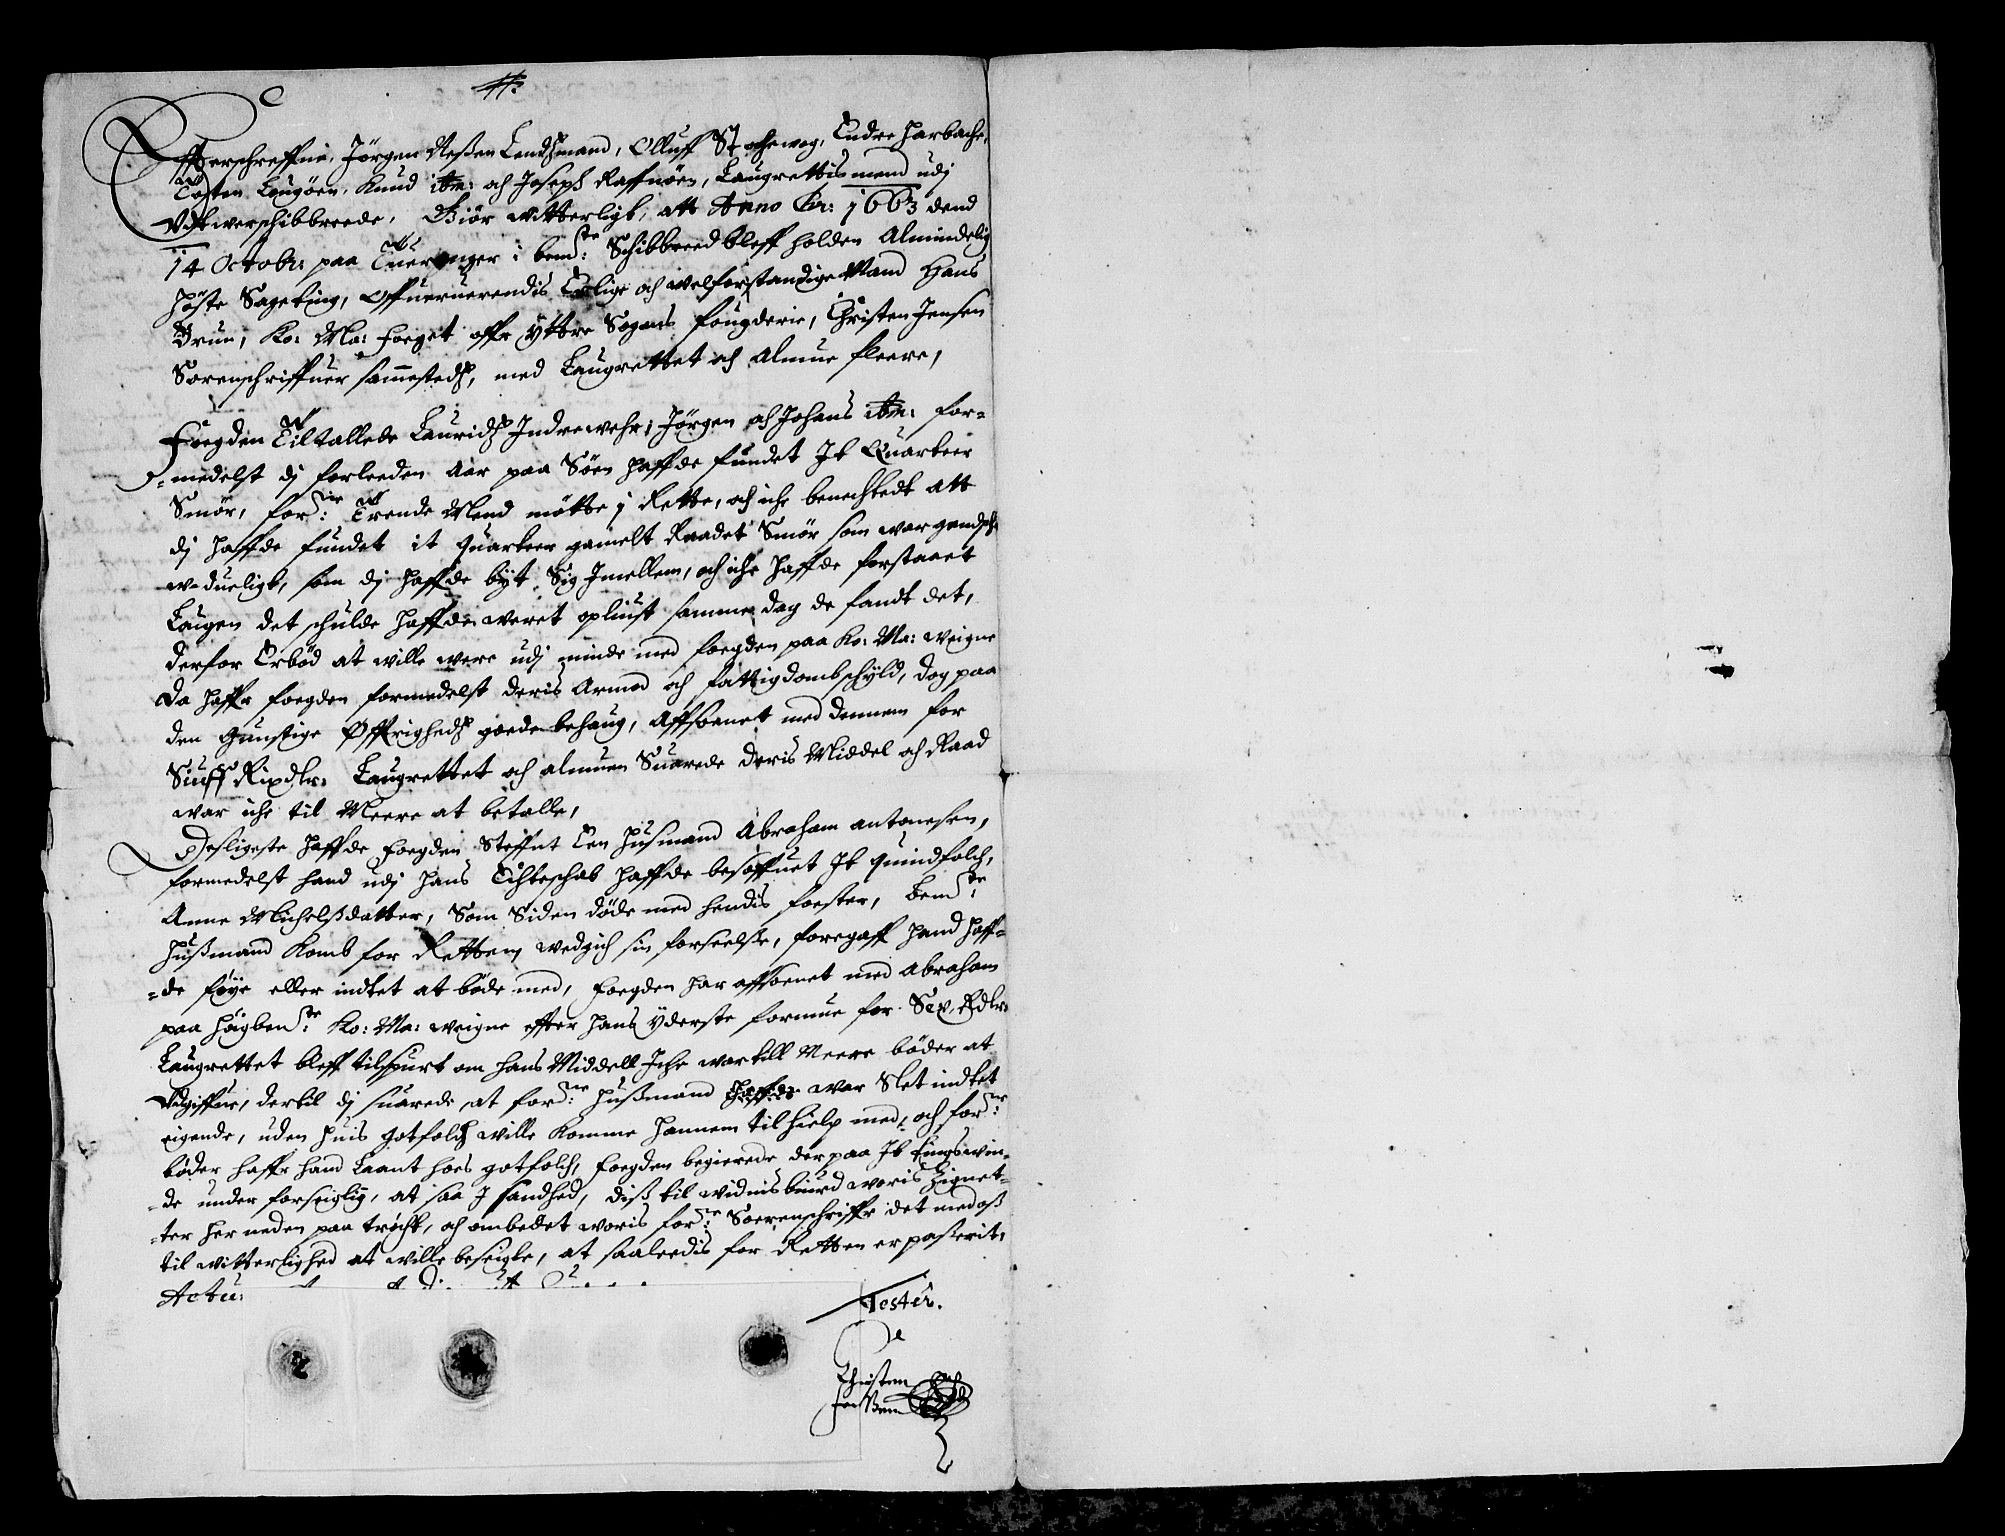 Effterschreffne, Jørgen Neßen Lendßmand, Olluff Stocheuog, Endre harbache,
Tosten Laugøen, Knud ibm: och Joseph Raffnøen, Laugrettismend udj
Vdtwerschibbreede, Giør witterligt, att Anno Chr: 1663 dend
14 Octobr: paa Tueranger i bemte: Schibbreed bleff holden Almindelig
høste Sageting, Offueruerendis Erlige och welforstandige Mand Hans
Brun, Ko: Ma: Foeget offr Yttre Sogns fougderie, Christen Jensen
Sorenschriffuer sammestedß, med Laugrettet och Almue fleere,
Foegden Tiltallede Lauridß Indrewehr, Jørgen och Johans ibm: for-
-medelst dj forleeden Aar paa Søen haffde fundet It Quarteer
Smør, forne: Trende Mend møtte j Rette, och iche benechtede att
dj haffde fundet it quarteer gamelt Raadet Smør som war gandsche
w-dueligt, som dj haffde byt Sig Imellem, och iche haffde forstaaet
Laugen det schulde haffde weret opliust samme dag de fandt det,
derfor Erbød at wille were udj minde med foegden paa Ko: Ma: weigne
Da haffr foegden formedelst deris Armod och fattigdomb schyld, dog paa
den Gunstige Øffrighedß goede behaug, Affsoenet med dennem for
Siuff Rixdlr: Laugrettet och almuen Suarede deris Middel och Raad
war iche til Meere at betalle,
Desligeste haffde foegden Steffnt Een husmand Abraham antonesen,
formedelst hand udj hans Echteschab haffde besoffuet It quindfolch,
Anne Michelßdatter, Som Siden døde med hendis foester, bemte:
hußmand Komb for Retten, wedgich sin forseelse, foregaff hand haff-
-de føye eller indtet at bøde med, foegden har affsoenet med Abraham
paa høgbemte: Ko: Ma: weigne effter hans yderste formue for Sex Rdlr:
Laugrettet bleff tilspurt om hans Middell Iche war till Meere bøder at
Vdgiffue, dertil dj suarede at forne: hußmand haffde war Slet indtet
eigende, uden huis gotfolch wille Komme hannem til hielp med, och forne:
bøder haffr hand Laant hoes gotfolch, foegden begierede der paa It tingswin-
-de under forseigling, at saa J sandhed, diß til widnisbiurd woris Zignet-
-ter her neden paa trøcht, och ombedet woris forne: Soerenschriffr det med oß
til witterlighed at wille beseigle, at saaleedis for Retten er passerit,
Actu:
Tester.
Christen
Jensen